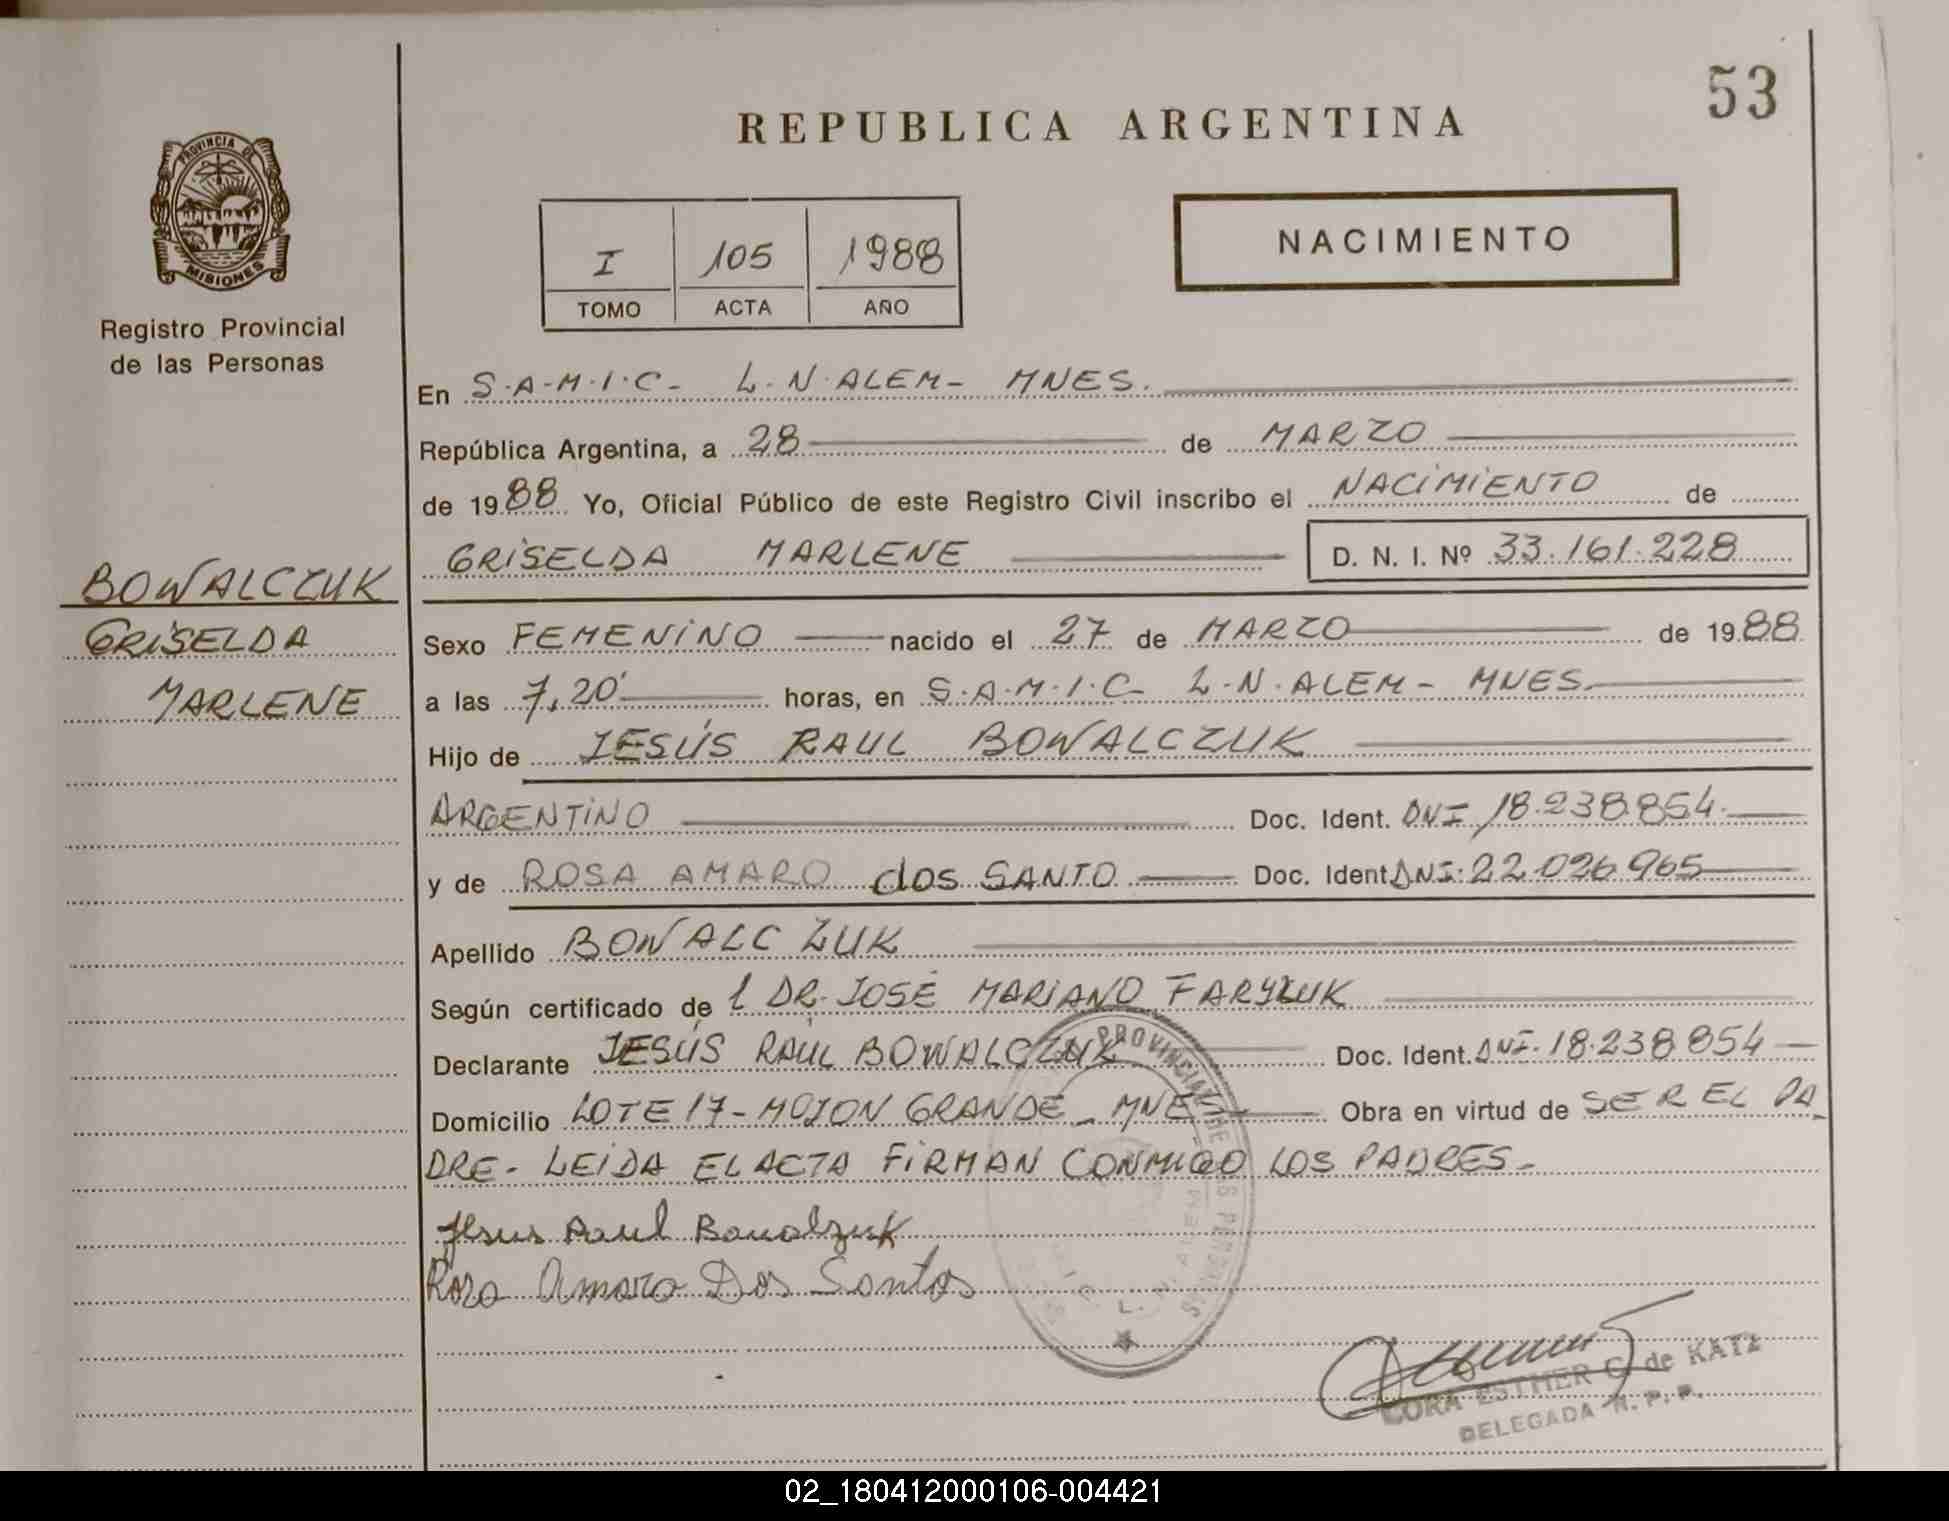 53
REPUBLICA ARGENTINA
PROVINCIA DE
MISIONES
Registro Provincial
de las Personas
I 105 1988
TOMO ACTA AÑO
NACIMIENTO
En S.A.M.I.C- L.N.ALEM- MNES.
República Argentina, a 28 de MARZO
de 1988 Yo, Oficial Público de este Registro Civil inscribo el NACIMIENTO de
GRISELDA MARLENE D. N. I. Nº 33.161.228
BOWALCZUK
GRISELDA
MARLENE
Sexo FEMENINO nacido el 27 de MARZO de 1988
a las 7,20' horas, en S.A.M.I.C- L.N.ALEM- MNES.
Hijo de JESÚS RAUL BOWALCZUK
ARGENTINO Doc. Ident. DNI 18.238.854.
y de ROSA AMARO dos SANTO Doc. Ident DNI: 22.026.965
Apellido BOWALCZUK
Según certificado de l DR. JOSÉ MARIANO FARYLUK
Declarante JESÚS RAÚL BOWALCZUK Doc. Ident. DNI. 18.238.854
Domicilio LOTE 17- MOJON GRANDE- MNES Obra en virtud de SER EL PA-
DRE- LEIDA EL ACTA FIRMAN CONMIGO LOS PADRES-
Jesus Raul Bowalzuk
Rosa Amaro Dos Santos
PROVINCIAL DE LAS PERSONAS
L. N. ALEM
CORA ESTHER C. de KATZ
DELEGADA R. P. P.
02_180412000106-004421